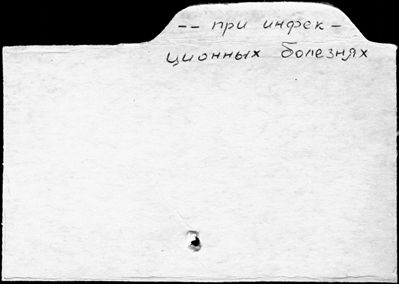 -- при инфек-
ционных болезнях